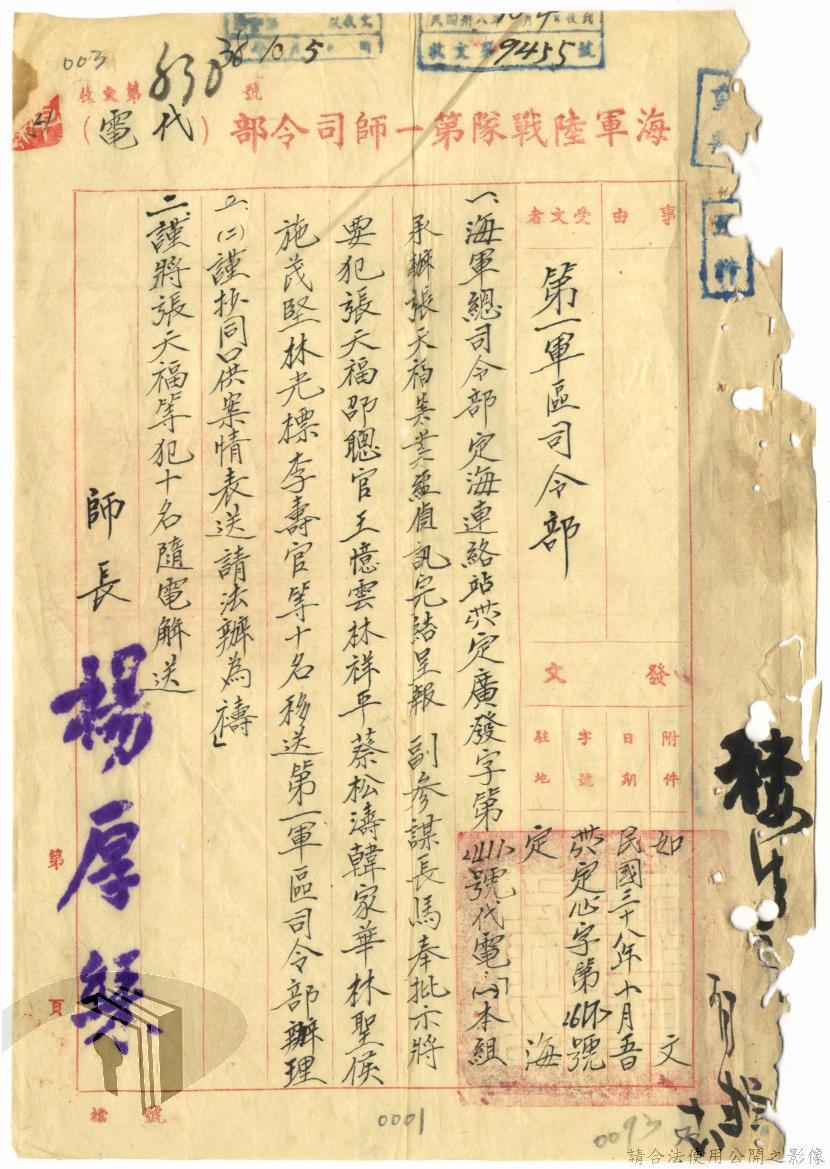 003
38 10 5
9455號
收文第 號
海軍陸戰隊第一師司令部（代電）
事由
受文者
第一軍區司令部
發文
附件
如文
日期
民國三十八年十月五日
字號
定心字第 號
駐地
定海
一、海軍總司令部定海連絡站 定廣發字第 號代電「(一)本組
承辦張天福等 業經偵訊完結呈報 副參謀長馬奉批示將
要犯張天福邵聰官王憶雲林祥平蔡松濤韓家華林聖俟
施茂堅林光標李壽官等十名移送第一軍區司令部辦理
(二)謹抄同口供案情表送請法辦為禱」
二、謹將張天福等犯十名隨電解送
師長 楊厚綵
第 頁
檔 號
0001
0093
請合法使用公開之影像